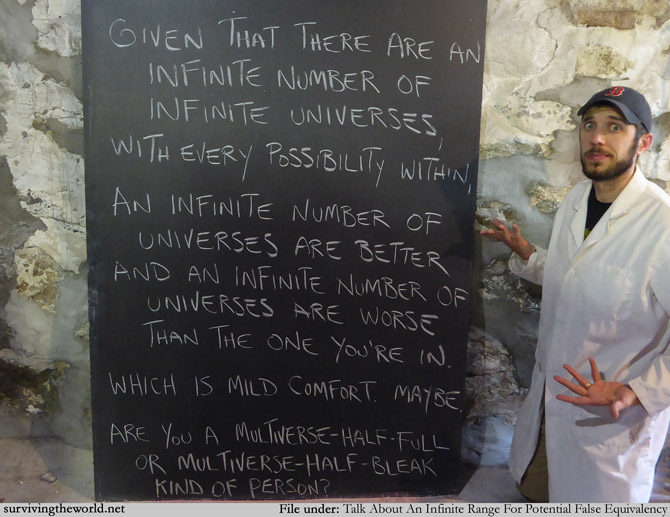 GIVEN THAT THERE ARE AN
INFINITE NUMBER OF
INFINITE UNIVERSES,
WITH EVERY POSSIBILITY WITHIN,
AN INFINITE NUMBER OF
UNIVERSES ARE BETTER
AND AN INFINITE NUMBER OF
UNIVERSES ARE WORSE
THAN THE ONE YOU'RE IN.
WHICH IS MILD COMFORT. MAYBE.
ARE YOU A MULTIVERSE-HALF-FULL
OR MULTIVERSE-HALF-BLEAK
KIND OF PERSON?
B
survivingtheworld.net File under: Talk About An Infinite Range For Potential False Equivalency